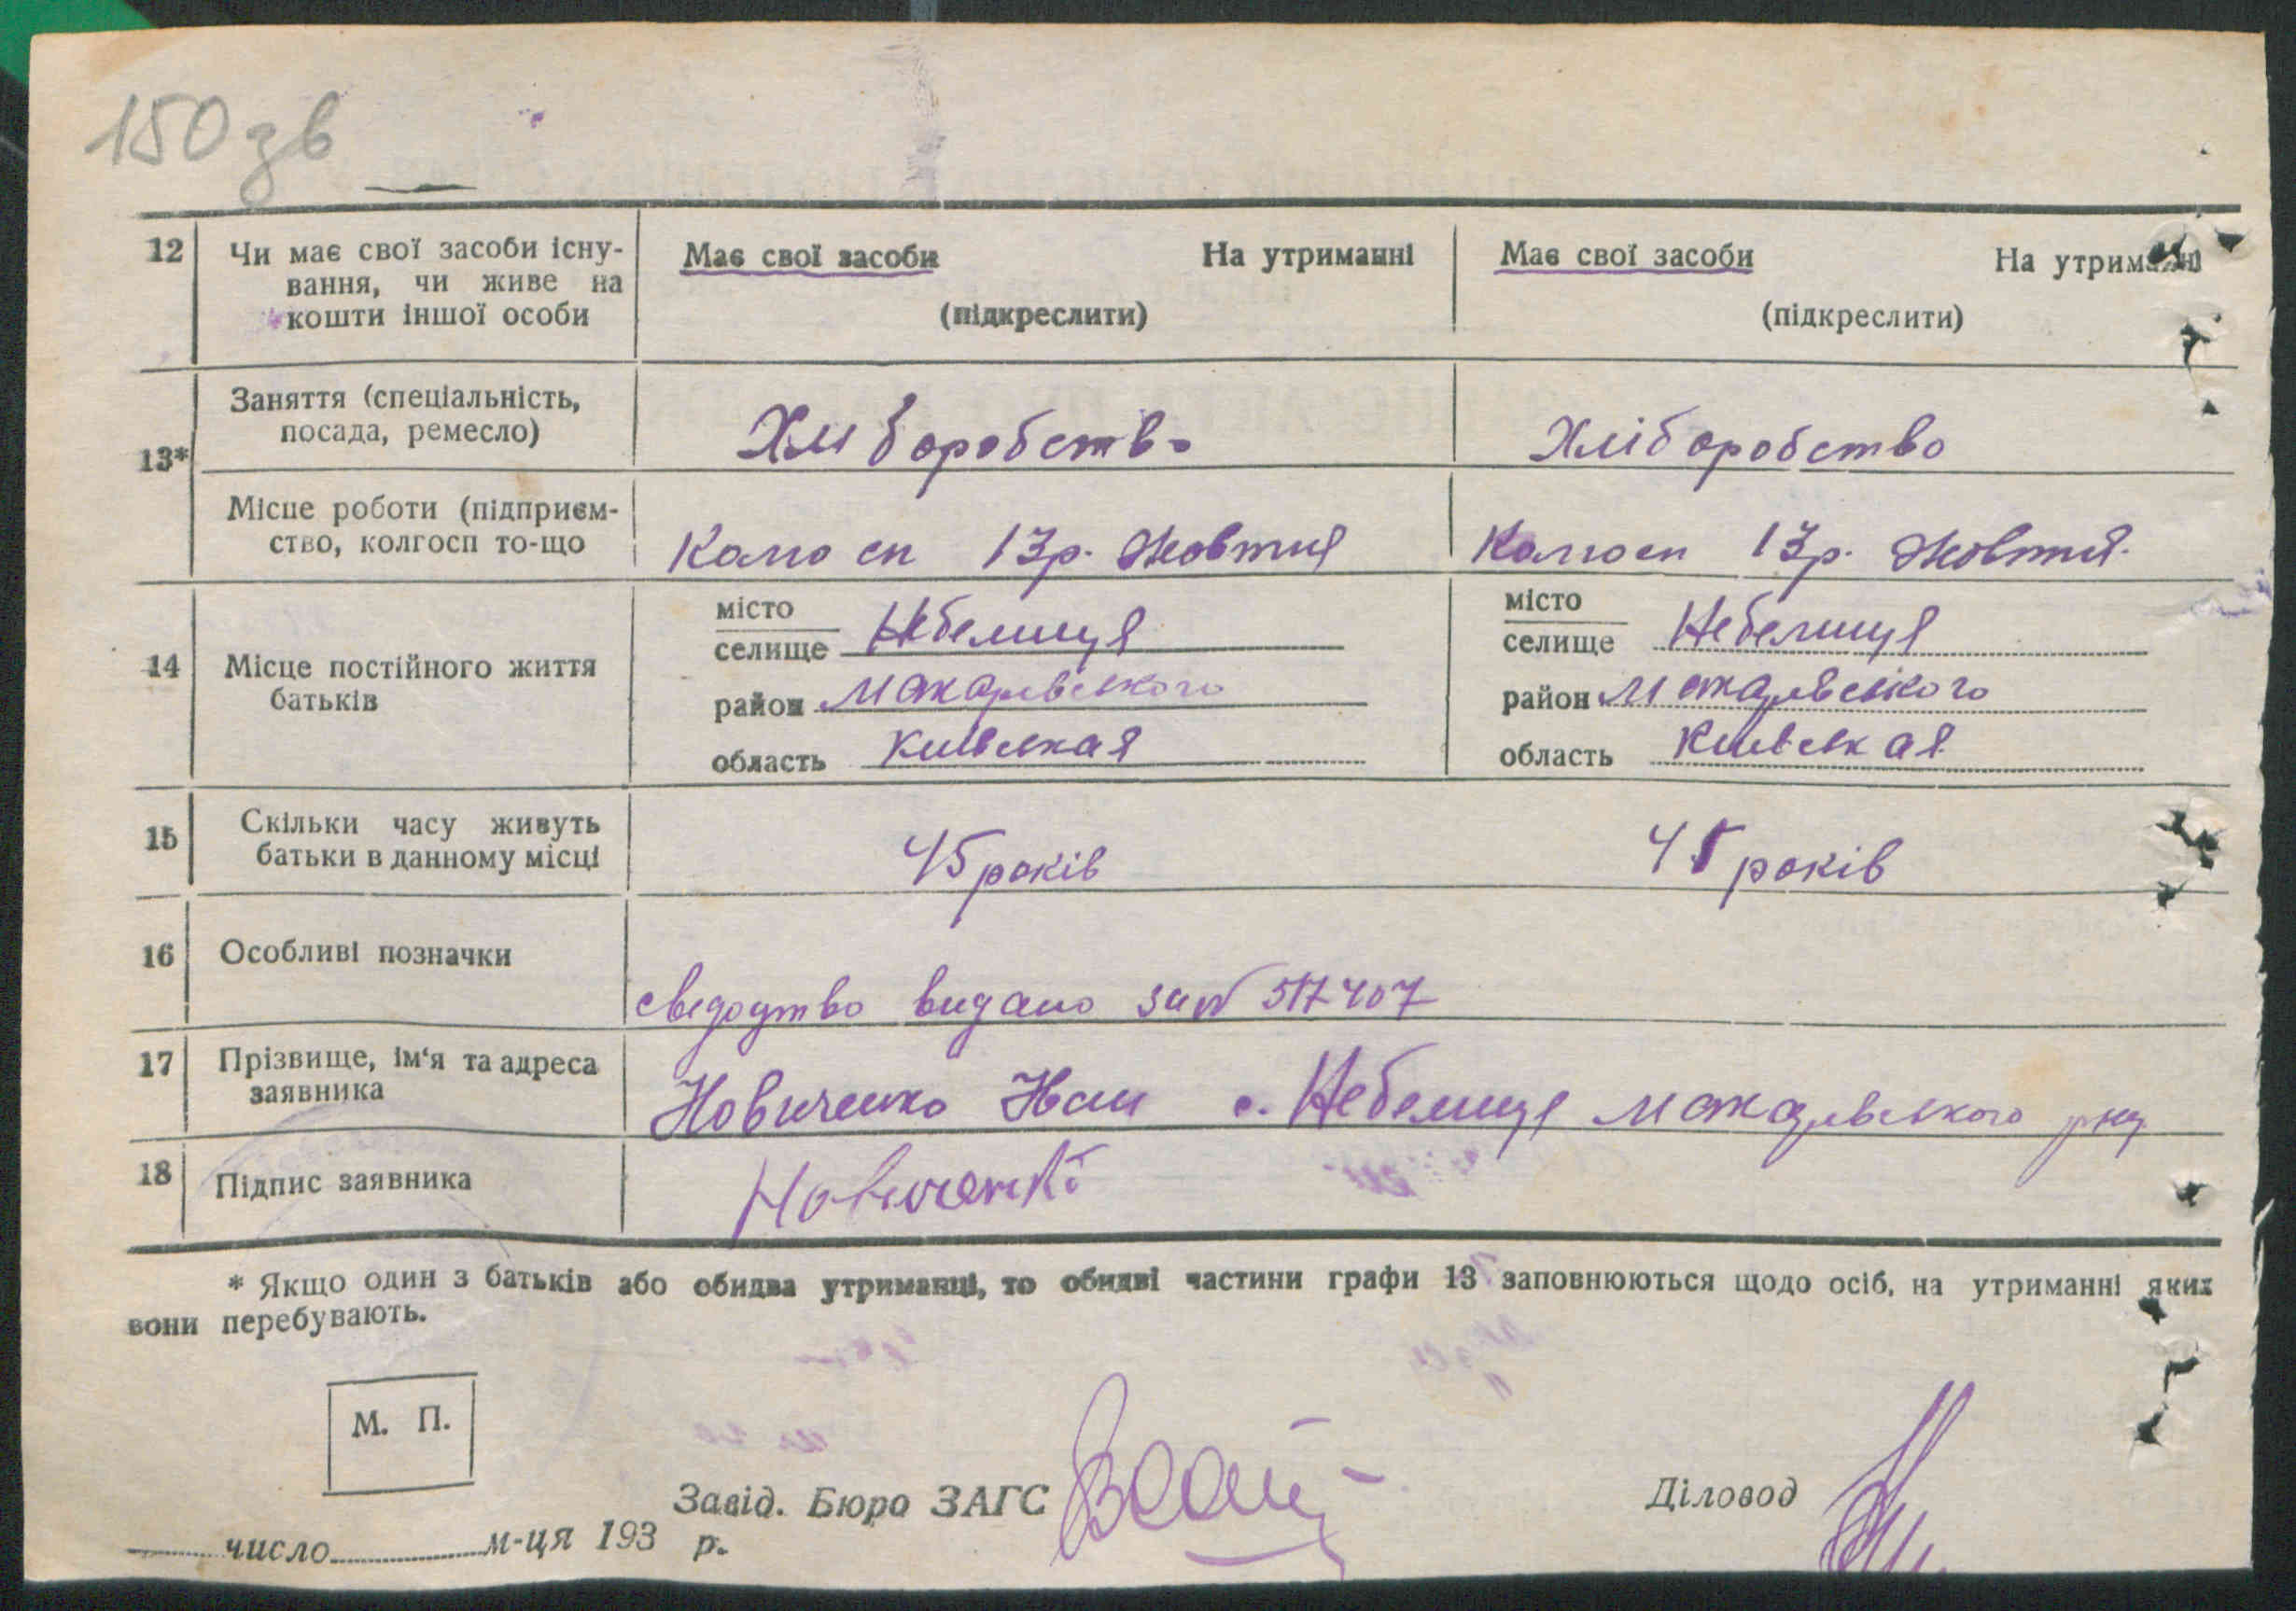 150 зв
12 Чи має свої засоби існу- Має свої засоби На утриманні Має свої засоби На утриманні
вання, чи живе на
кошти іншої особи (підкреслити) (підкреслити)
Заняття (спеціальність,
посада, ремесло) Хліборобство Хліборобство
13*
Місце роботи (підприєм-
ство, колгосп то-що Колгосп 13р. Жовтня Колгосп 13р. Жовтня
місто місто
селище Небелиця селище Небелиця
14 Місце постійного життя
батьків район Макарівського район Макарівського
область Київская область Київская
15 Скільки часу живуть
батьки в данному місці 45 років 45 років
16 Особливі позначки
сведодтво видано за № 517407
17 Прізвище, ім'я та адреса
заявника Новиченко Иван с. Небелиця Макарівського рну
18 Підпис заявника Новиченко
* Якщо один з батьків або обидва утриманці, то обидві частини графи 13 заповнюються щодо осіб, на утриманні яких
вони перебувають.
М. П.
Завід. Бюро ЗАГС Діловод
число м-ця 193 р.